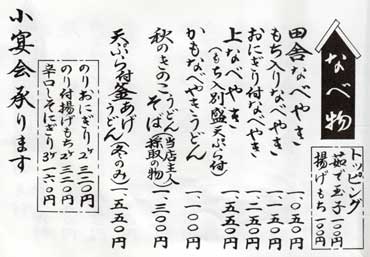 なべ物
トッピング
茹で玉子 一〇〇円
揚げもち 一〇〇円
田舎なべやき 一、〇五〇円
もち入りなべやき 一、一五〇円
おにぎり付なべやき 一、二五〇円
上なべやき(もち入別盛天ぷら付) 一、五五〇円
かもなべやきうどん 一、一〇〇円
秋のきのこうどんそば(当店主人採取物) 一、三〇〇円
天ぷら付釜あげうどん(冬のみ) 一、五五〇円
のりおにぎり 2ヶ 三二〇円
のり付揚げもち 2ヶ 三二〇円
辛口しそにぎり 3ヶ 一六〇円
小宴会承ります